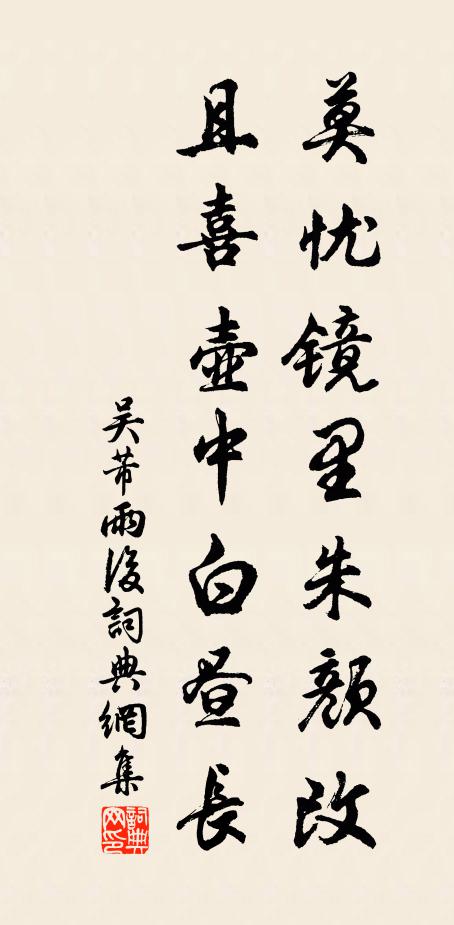 莫忧镜里朱颜改
且喜壶中白昼長
吴芾雨後詞典網集
詞典网印